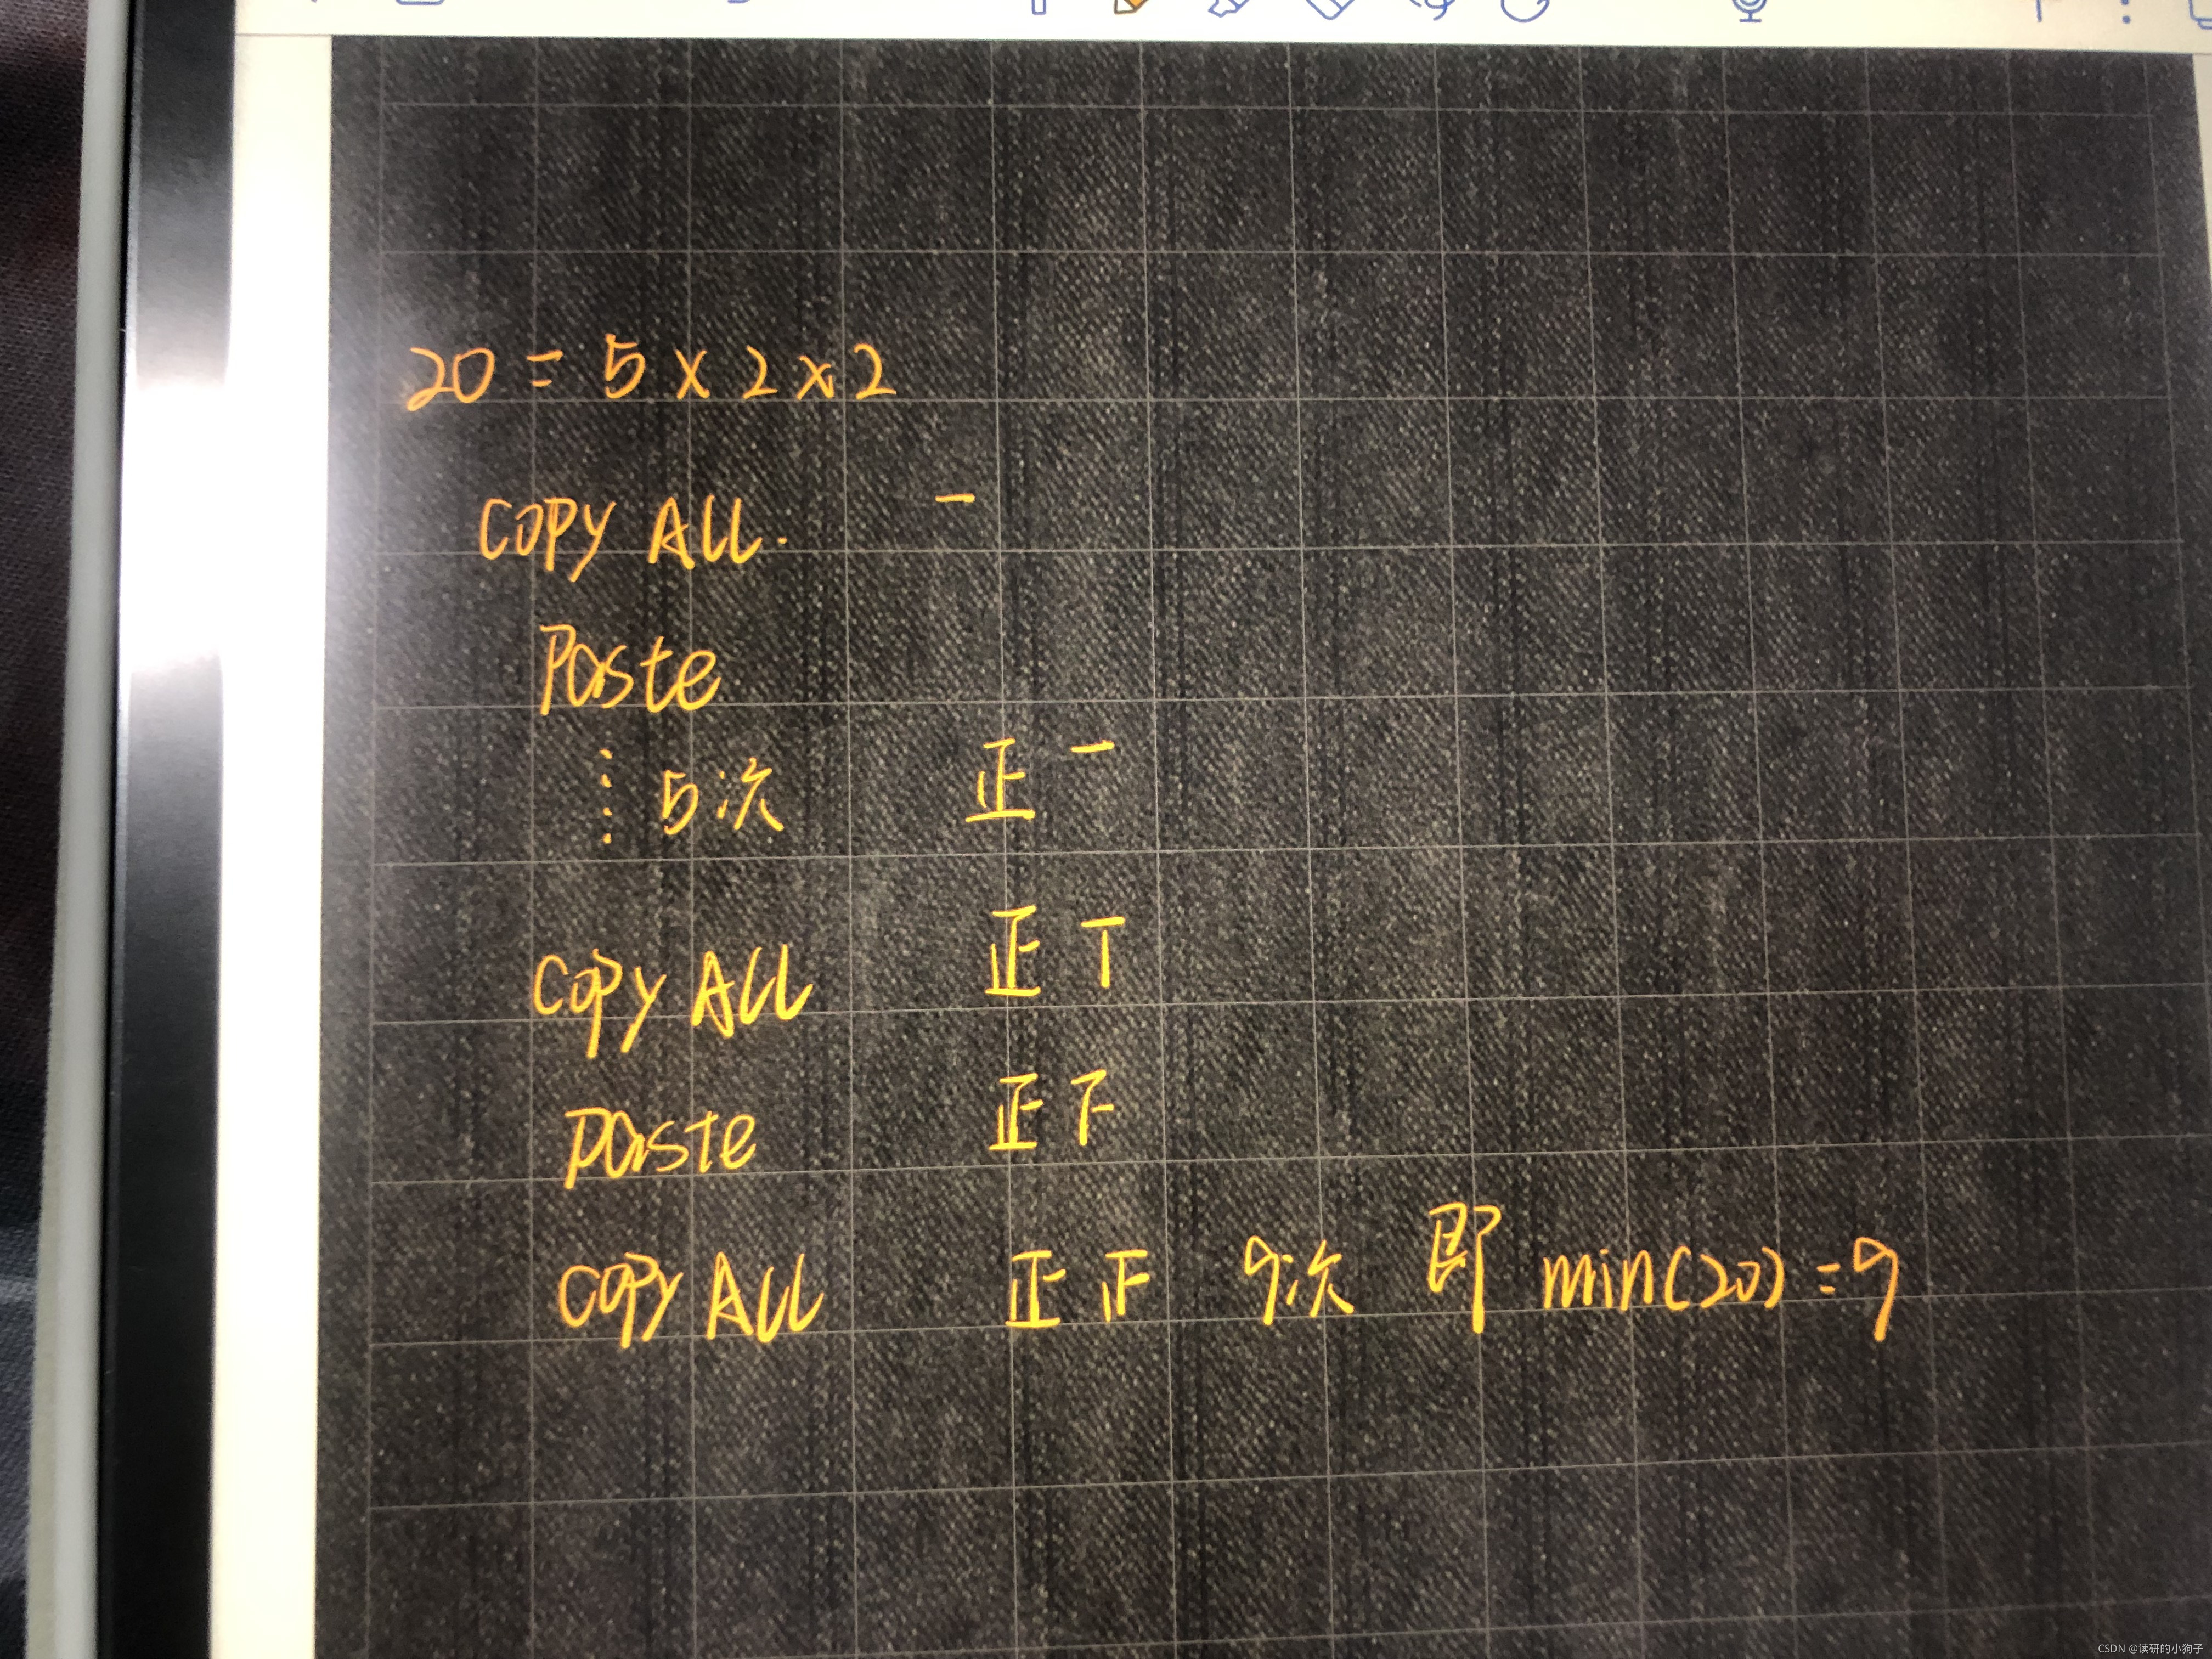 20 = 5 x 2 x 2
COPY ALL. 一
Paste
⋮ 5次 正 一
COPY ALL 正 丅
paste 正 下
COPY ALL 正 正 9次 即 min(20) = 9
CSDN @读研的小狗子